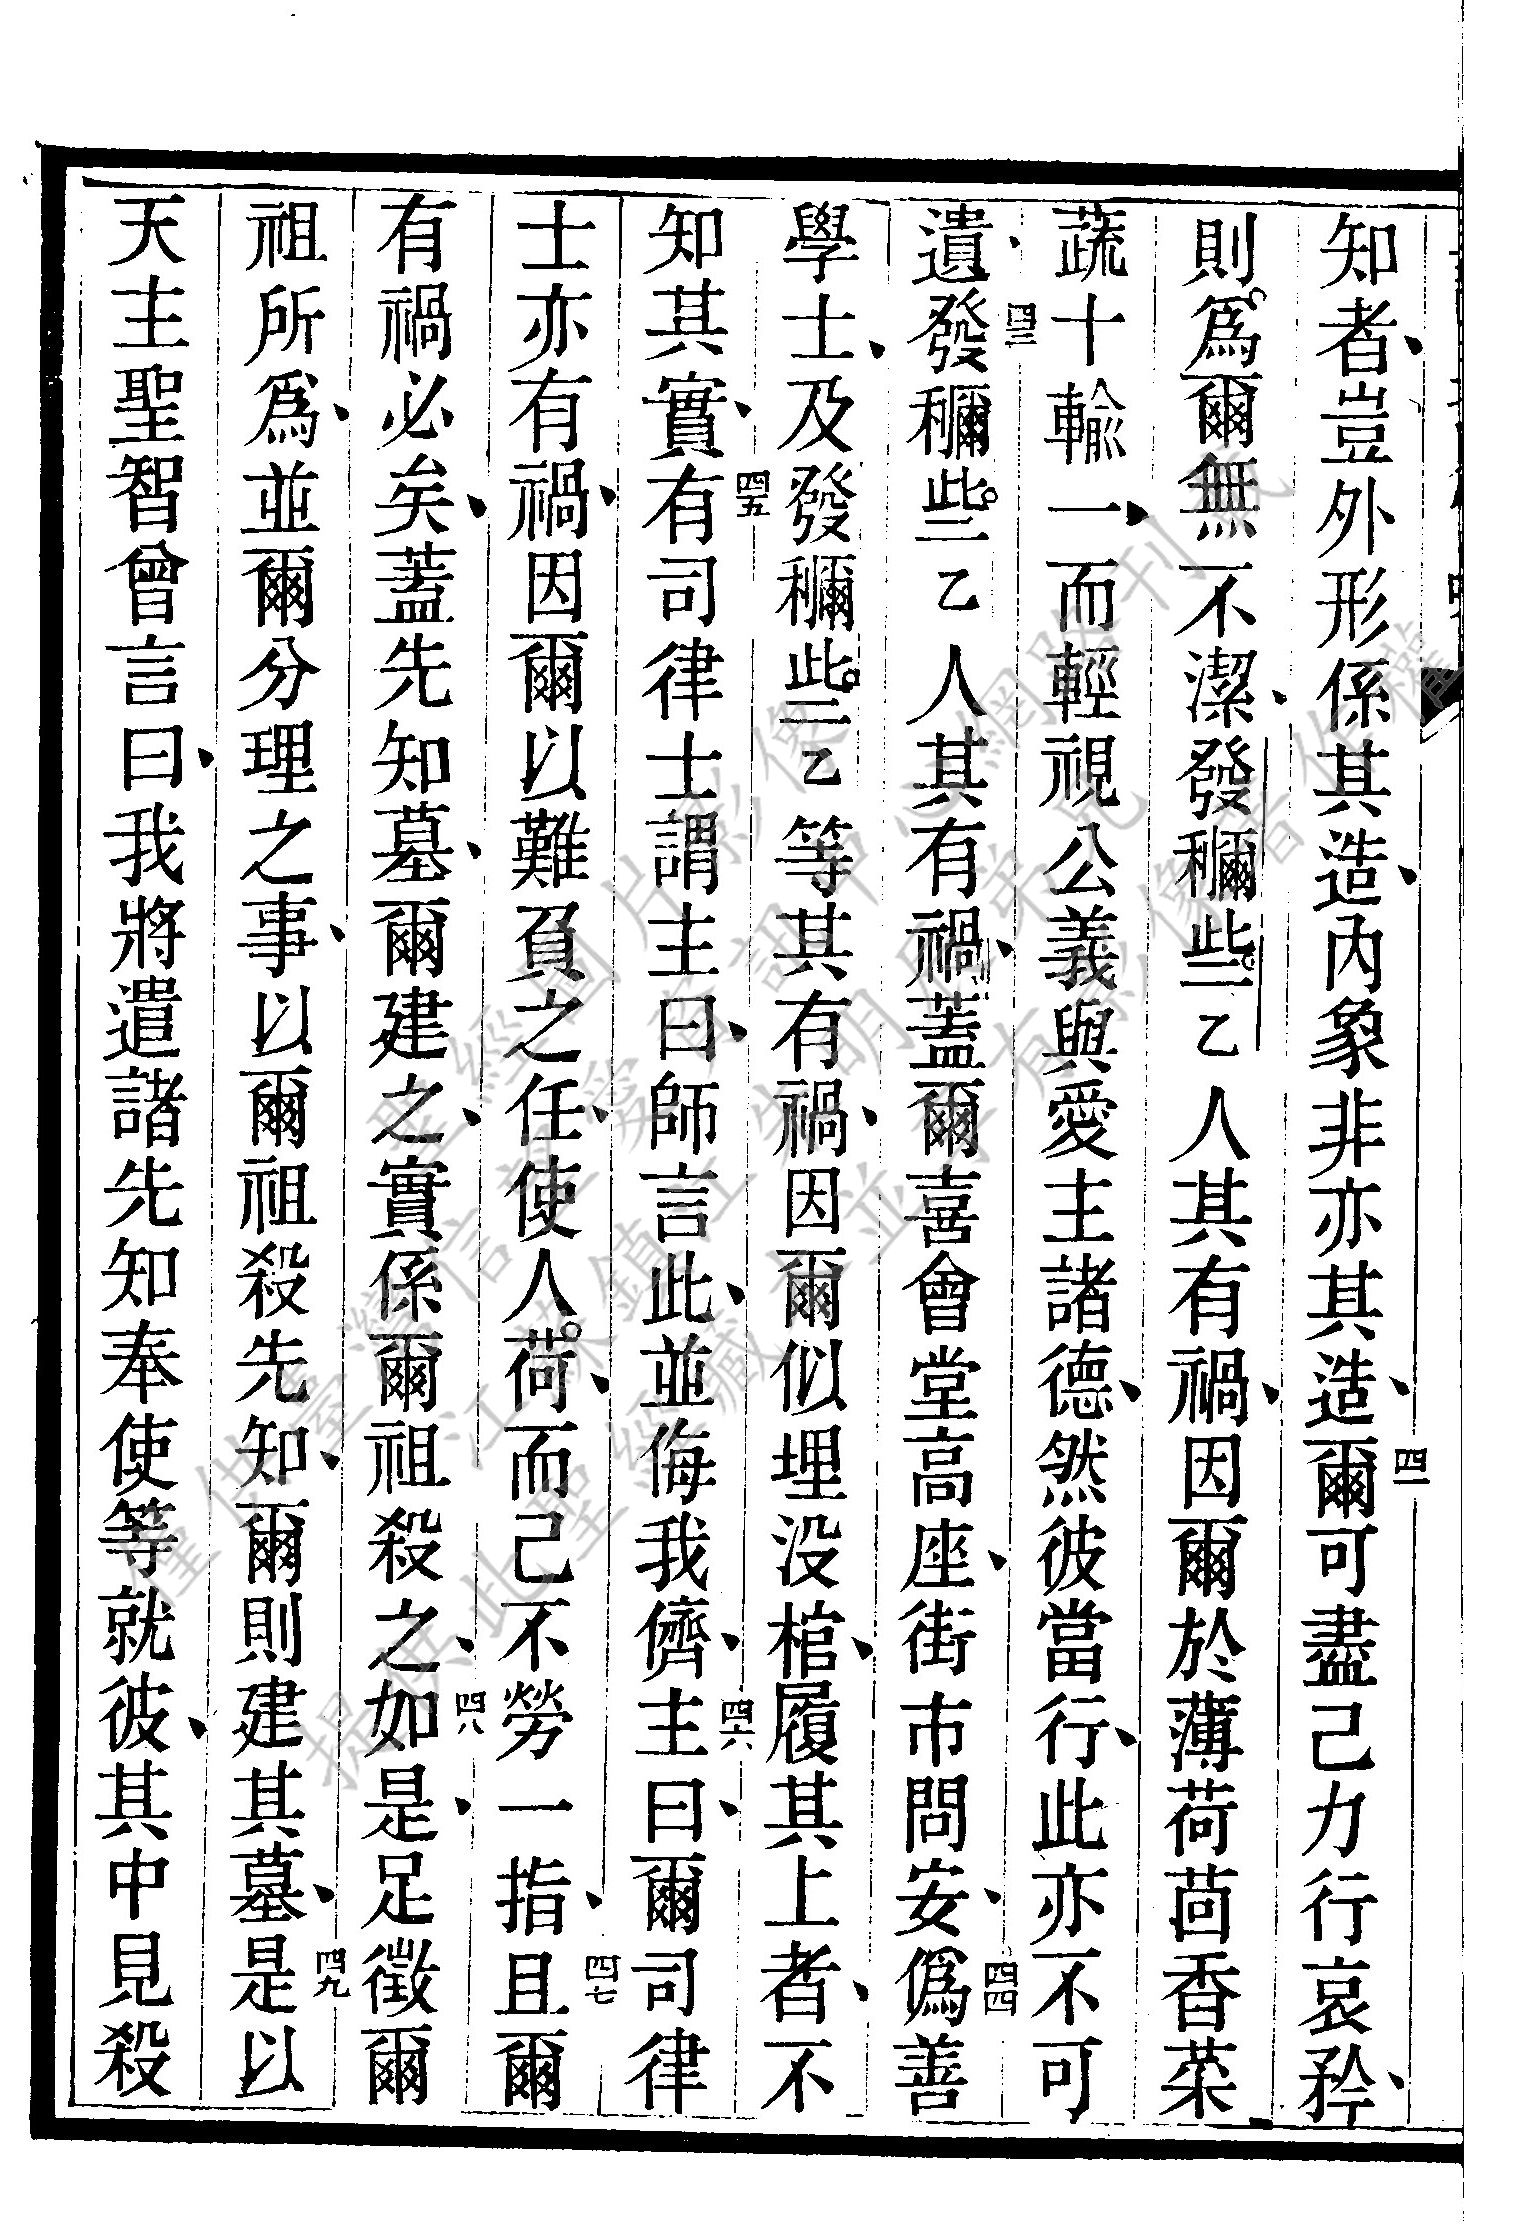 知者、豈外形係其造、內象非亦其造、四一爾可盡己力行哀矜、
則爲爾無不潔、發穪些二乙人其有禍、因爾於薄荷茴香菜
蔬十輸一、而輕視公義與愛主諸德、然彼當行、此亦不可
遺、四三發穪些二乙人其有禍、蓋爾喜會堂高座、街市問安、四四僞善
學士、及發穪些二乙等其有禍、因爾似埋没棺、履其上者、不
知其實、四五有司律士謂主曰、師言此、並侮我儕、四六主曰、爾司律
士亦有禍、因爾以難負之任、使人荷、而己不勞一指、四七且爾
有禍必矣、蓋先知墓、爾建之、實係爾祖殺之、四八如是、足徵爾
祖所爲、並爾分理之事、以爾祖殺先知、爾則建其墓、四九是以
天主聖智曾言曰、我將遣諸先知奉使等就彼、其中見殺
僅供臺灣信義會聖經圖片影像
提供此聖經鎮